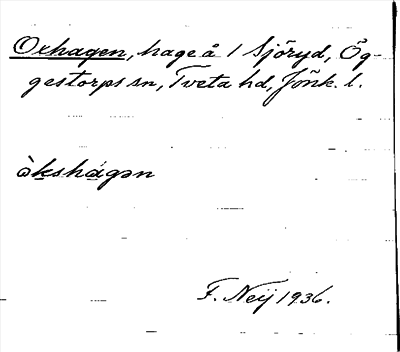 Oxhagen, hage å 1 Sjöryd, Ög-
gestorps sn, Tveta hd, Jönk. l.
òkshágən
F. Neij 1936.